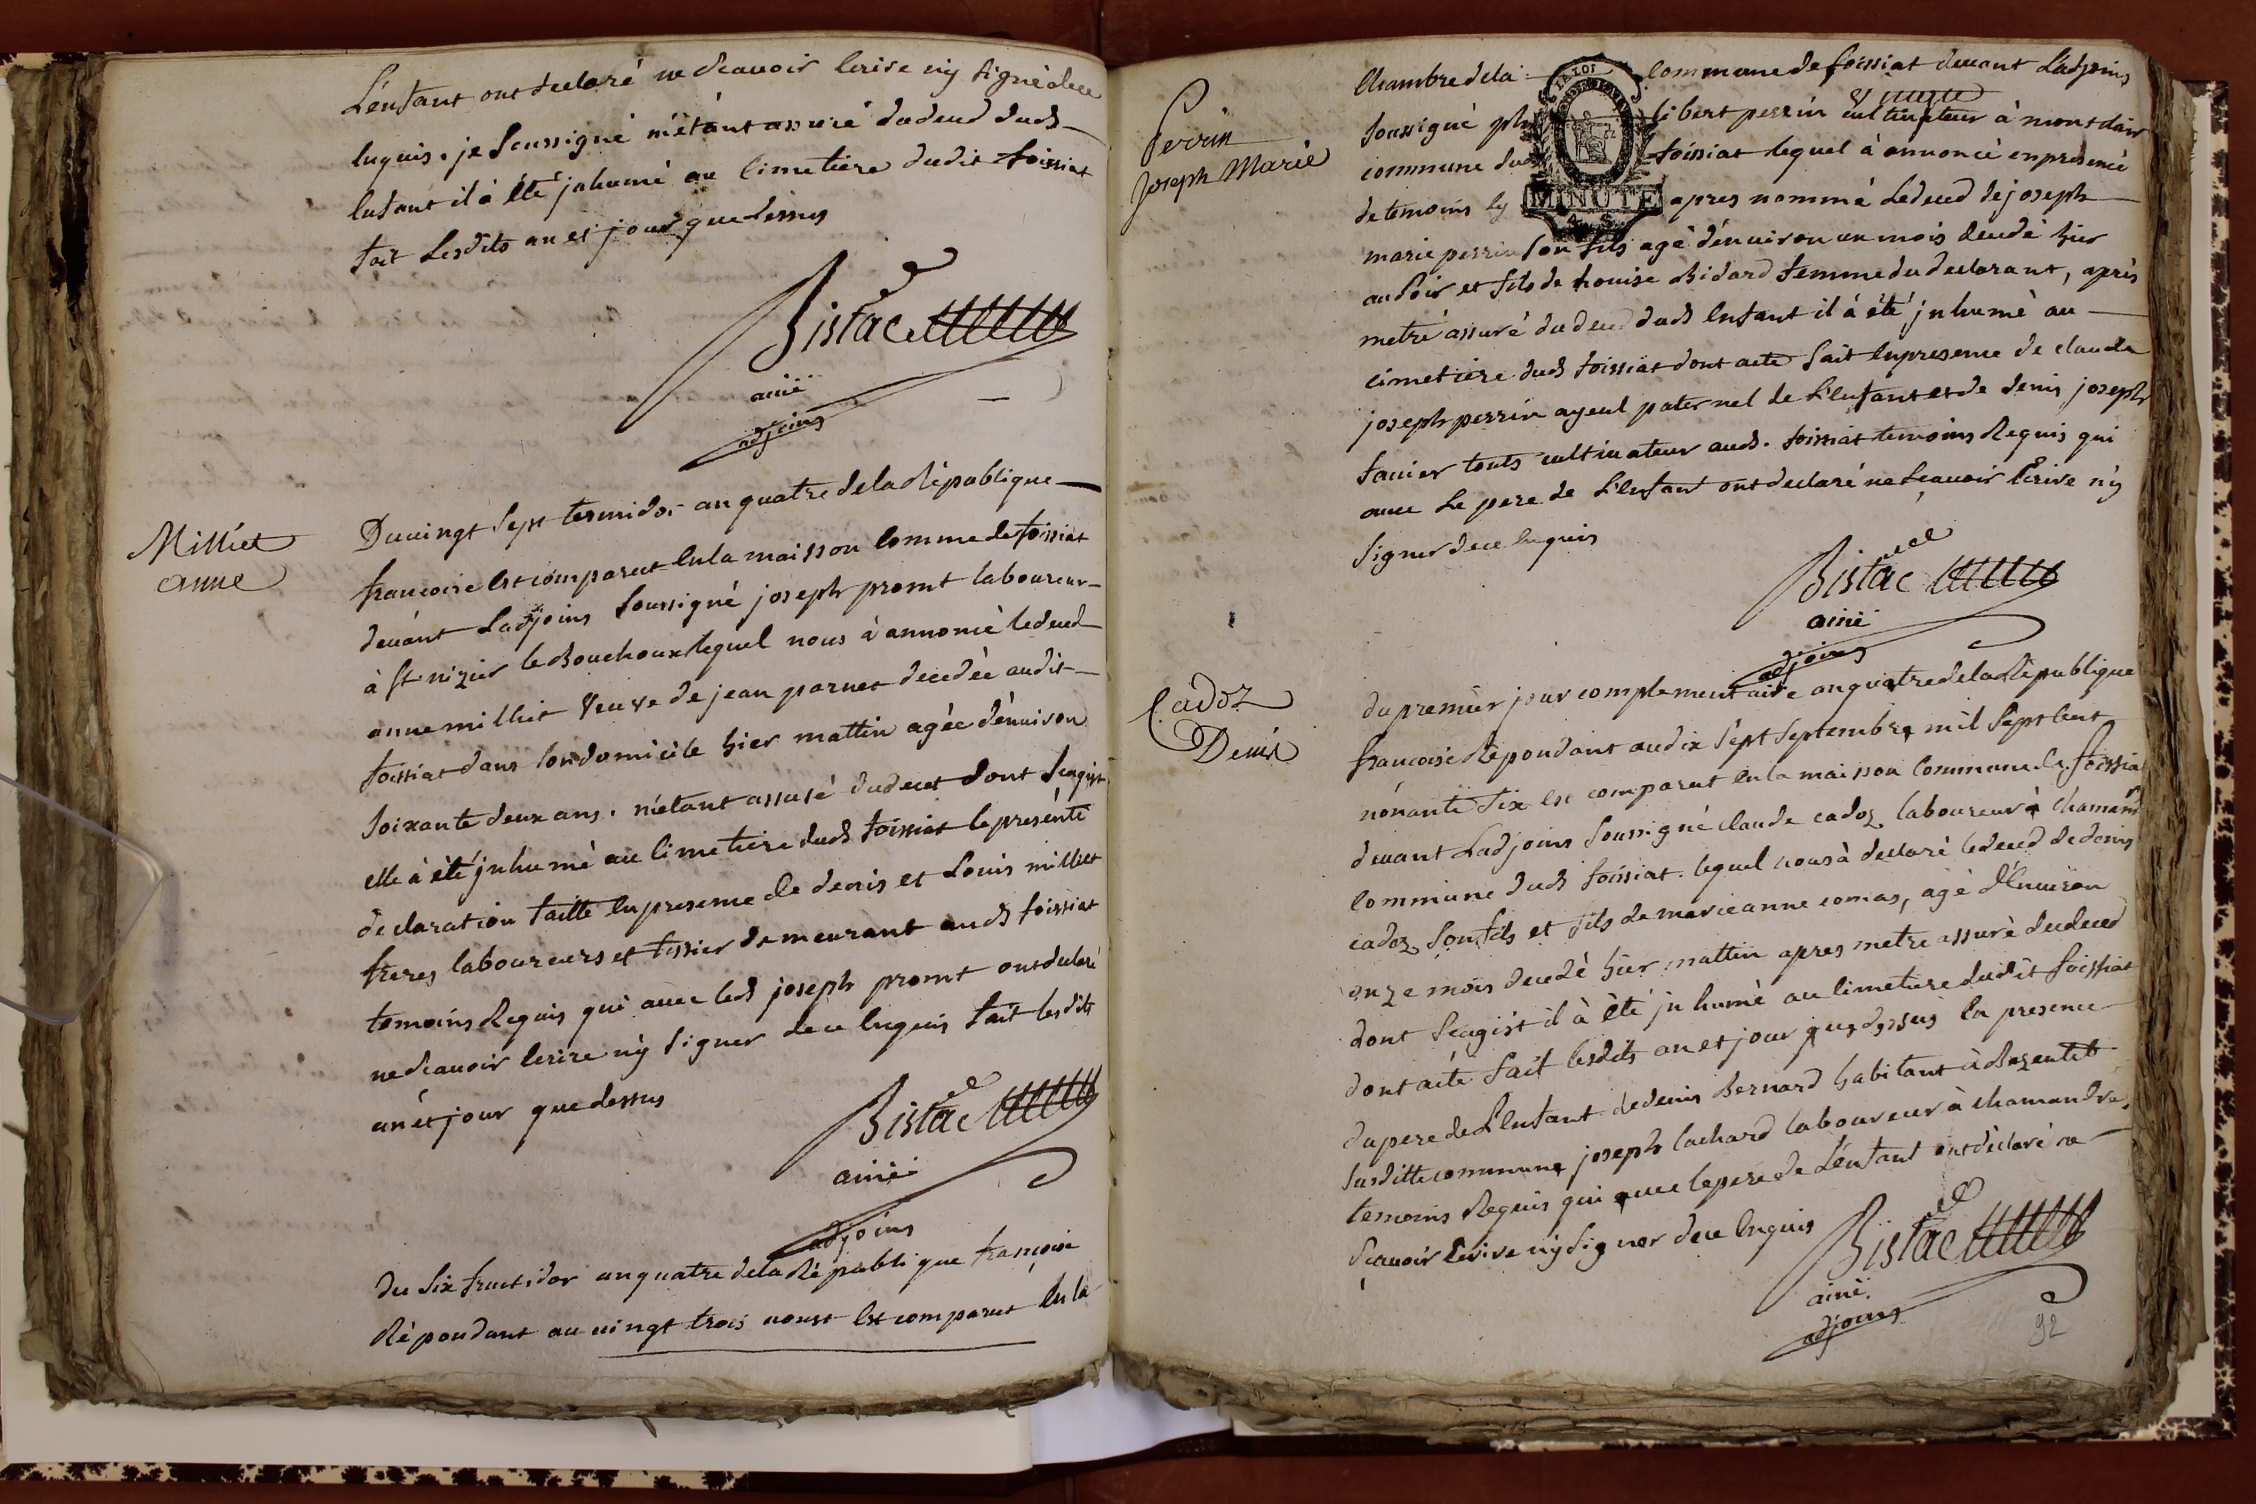 L'enfant ont declaré ne Scavoir Ecrire ny signé dece
Enquis. je soussigné m'étant assuré du deced dud
Enfant il à été jnhumé au Cimetiere dudit foissiat
fait Lesdits an et jour que dessus
Bistac
ainé
adjoins
Milliet
anne
Du vingt Sept termidor an quatre de la République
francoise Est comparut En la maisson Commune de foissiat
devant Ladjoins Soussigné joseph promt laboureur
à st nizier le Bouchoux lequel nous à annoncé le deced
anne milliet Veuve de jean parnet decedée audit
foissiat dans son domicile hier mattin agée d'énviron
soixante deux ans. m'etant assuré du deces dont S'eagist
elle à été jnhumé au Cimetiere dud foissiat le presénte
declaration faitte En presence de denis et Louis milliet
freres laboureurs et tissier demeurant aud foissiat
temoins Requis qui avec led joseph promt ont declaré
ne Scavoir Ecrire ny signer de ce Enquis fait lesdits
an et jour que dessus
Bistac
ainé
adjoins
Du Six fructidor an quatre de la République françoise
Répondant au vingt trois aoust Est comparut En la
Perrin
Joseph Marie
LA LOI
MINUTE
Chambre de la Commune de foissiat devant Ladjoins
soussigné libert perrin cultivateur à
commune dud foissiat lequel à annoncé en presence
de temoins Cy apres nommé Le deced de joseph
marie perrin Son fils agé d'énviron un mois decedé hier
au Soir et fils de Louise Bidard femme du declarant, après
metré assuré du deced dud Enfant il à été jnhumé au
cimetiere dud foissiat dont acte fait En presence de claude
joseph perrin ayeul paternel de L'Enfant et de denis joseph
tous cultivateur aud. foissiat temoins Requis qui
avec Le pere de L'Enfant ont declaré ne Scavoir Ecrire ny
Signer de ce Enquis
Bistac
ainé
adjoins
Cadoz
Denis
du premier jour complementaire an quatre de la République
francoise Répondant au dix Sept Septembre mil Sept Cent
nonante Six est comparut En la maisson Commune de foissiat
devant Ladjoins Soussigné claude cadoz laboureur à chamandré
Commune dud foissiat. lequel nous à declaré le deced de denis
cadoz Son fils et fils de marieanne comas, agé d'Environ
onze mois decedé hier mattin apres metre assuré du deced
dont S'eagist il à été jnhumé au Cimetiere dudit foissiat
dont acte fait Lesdits an et jour que dessus En presence
du pere de L'Enfant de denis Bernard habitant à
Susditte commune joseph lachard laboureur à chamandré,
temoins Requis qui avec le pere de L'enfant ont declaré ne
Scavoir Ecrire ny Signer de ce Enquis
Bistac
ainé
adjoins
92